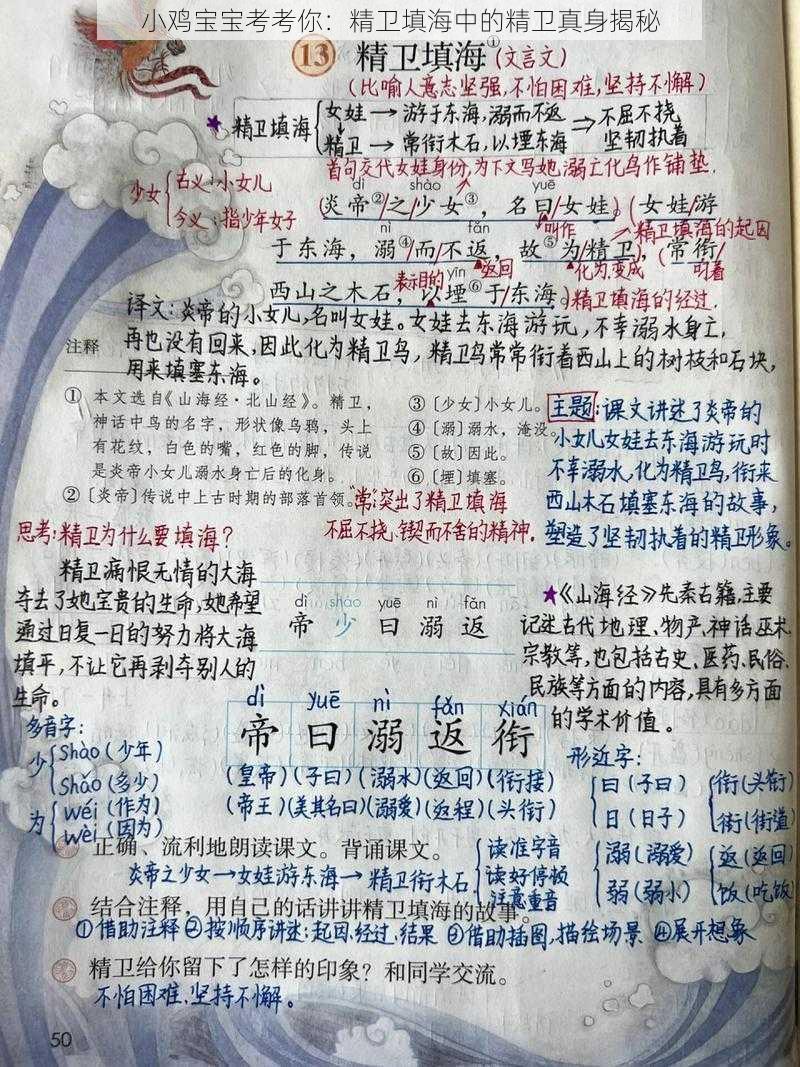 小鸡宝宝考考你：精卫填海中的精卫真身揭秘
13 精卫填海①(文言文)
(比喻人意志坚强,不怕困难,坚持不懈)
★ 精卫填海 女娃→游于东海,溺而不返
精卫→常衔木石,以堙东海 ⇒ 不屈不挠 坚韧执着
首句交代女娃身份,为下文写她溺亡化鸟作铺垫.
少女 古义:小女儿
今义:指少年女子
dì shào yuē
(炎帝②/之/少女③，名曰/女娃。)(女娃/游
叫作 精卫填海的起因
nì fǎn
于东海，溺④/而/不返，故⑤为/精卫，)(常衔/
表示目的 返回 化为,变成 叼着
yīn
西山之木石，以堙⑥于/东海。)精卫填海的经过.
译文:炎帝的小女儿,名叫女娃。女娃去东海游玩,不幸溺水身亡,
再也没有回来,因此化为精卫鸟,精卫鸟常常衔着西山上的树枝和石块,
用来填塞东海。
注释
① 本文选自《山海经·北山经》。精卫，
神话中鸟的名字，形状像乌鸦，头上
有花纹，白色的嘴，红色的脚，传说
是炎帝小女儿溺水身亡后的化身。
② 〔炎帝〕传说中上古时期的部落首领。
③ 〔少女〕小女儿。
④ 〔溺〕溺水，淹没。
⑤ 〔故〕因此。
⑥ 〔堙〕填塞。
主题:课文讲述了炎帝的
小女儿女娃去东海游玩时
不幸溺水,化为精卫鸟,衔来
西山木石填塞东海的故事,
塑造了坚韧执着的精卫形象。
"常"突出了精卫填海
不屈不挠、锲而不舍的精神.
思考:精卫为什么要填海?
精卫痛恨无情的大海
夺去了她宝贵的生命,她希望
通过日复一日的努力将大海
填平,不让它再剥夺别人的
生命。
dì shào yuē nì fǎn
帝 少 曰 溺 返
★《山海经》先秦古籍,主要
记述古代地理、物产、神话、巫术、
宗教等,也包括古史、医药、民俗、
民族等方面的内容,具有多方面
的学术价值。
dì yuē nì fǎn xián
帝 曰 溺 返 衔
(皇帝)(子曰)(溺水)(返回)(衔接)
(帝王)(美其名曰)(溺爱)(返程)(头衔)
多音字:
少 shào(少年)
shǎo(多少)
为 wéi(作为)
wèi(因为)
形近字:
曰(子曰) 衔(头衔)
日(日子) 街(街道)
溺(溺爱) 返(返回)
弱(弱小) 饭(吃饭)
正确、流利地朗读课文。背诵课文。 读准字音
读好停顿
注意重音
炎帝之少女→女娃游东海→精卫衔木石
结合注释，用自己的话讲讲精卫填海的故事。
①借助注释 ②按顺序讲述:起因,经过,结果 ③借助插图,描绘场景 ④展开想象
精卫给你留下了怎样的印象？和同学交流。
不怕困难、坚持不懈。
50